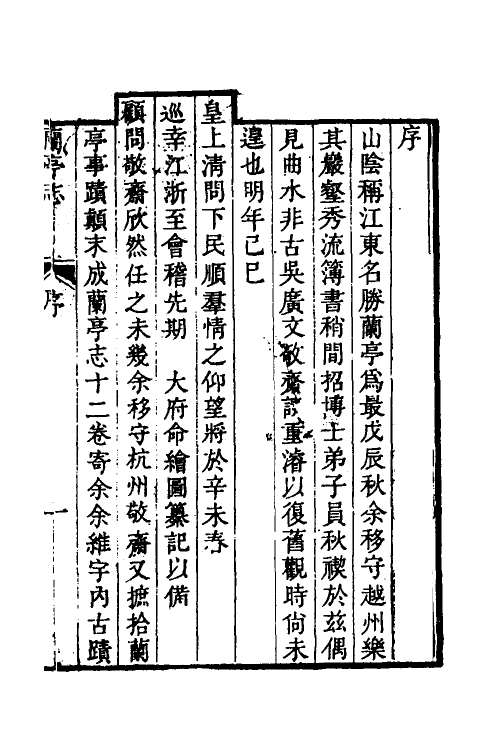 序
山陰稱江東名勝蘭亭爲最戊辰秋余移守越州樂
其巖壑秀流簿書稍間招博士弟子員秋禊於茲偶
見曲水非古吳廣文敬齋議重濬以復舊觀時尙未
遑也明年己巳
皇上清問下民順羣情之仰望將於辛未春
巡幸江浙至會稽先期　大府命繪圖纂記以備
顧問敬齋欣然任之未幾余移守杭州敬齋又摭拾蘭
亭事蹟顛末成蘭亭志十二卷寄余余維宇內古蹟
蘭亭志
序
一